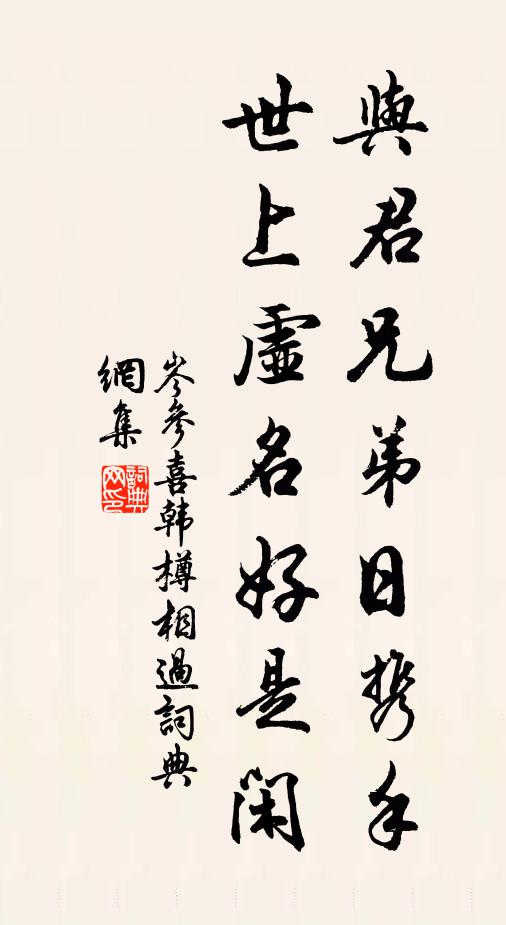 與君兄弟日携手
世上虛名好是閑
岑參喜韩樽相過詞典
網集
詞典
网印